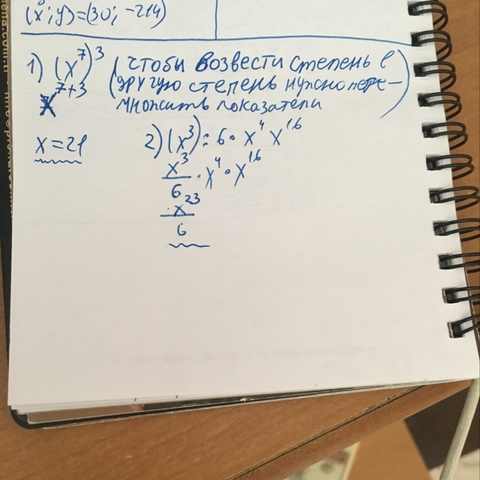 (x; y) = (30; -214)
1) (x⁷)³ (чтобы возвести степень в
другую степень нужно пере-
множить показатели)
x⁷⁺³
x = 21
2) (x³) : 6 · x⁴ x¹⁶
x³/6 · x⁴ · x¹⁶
x²³/6